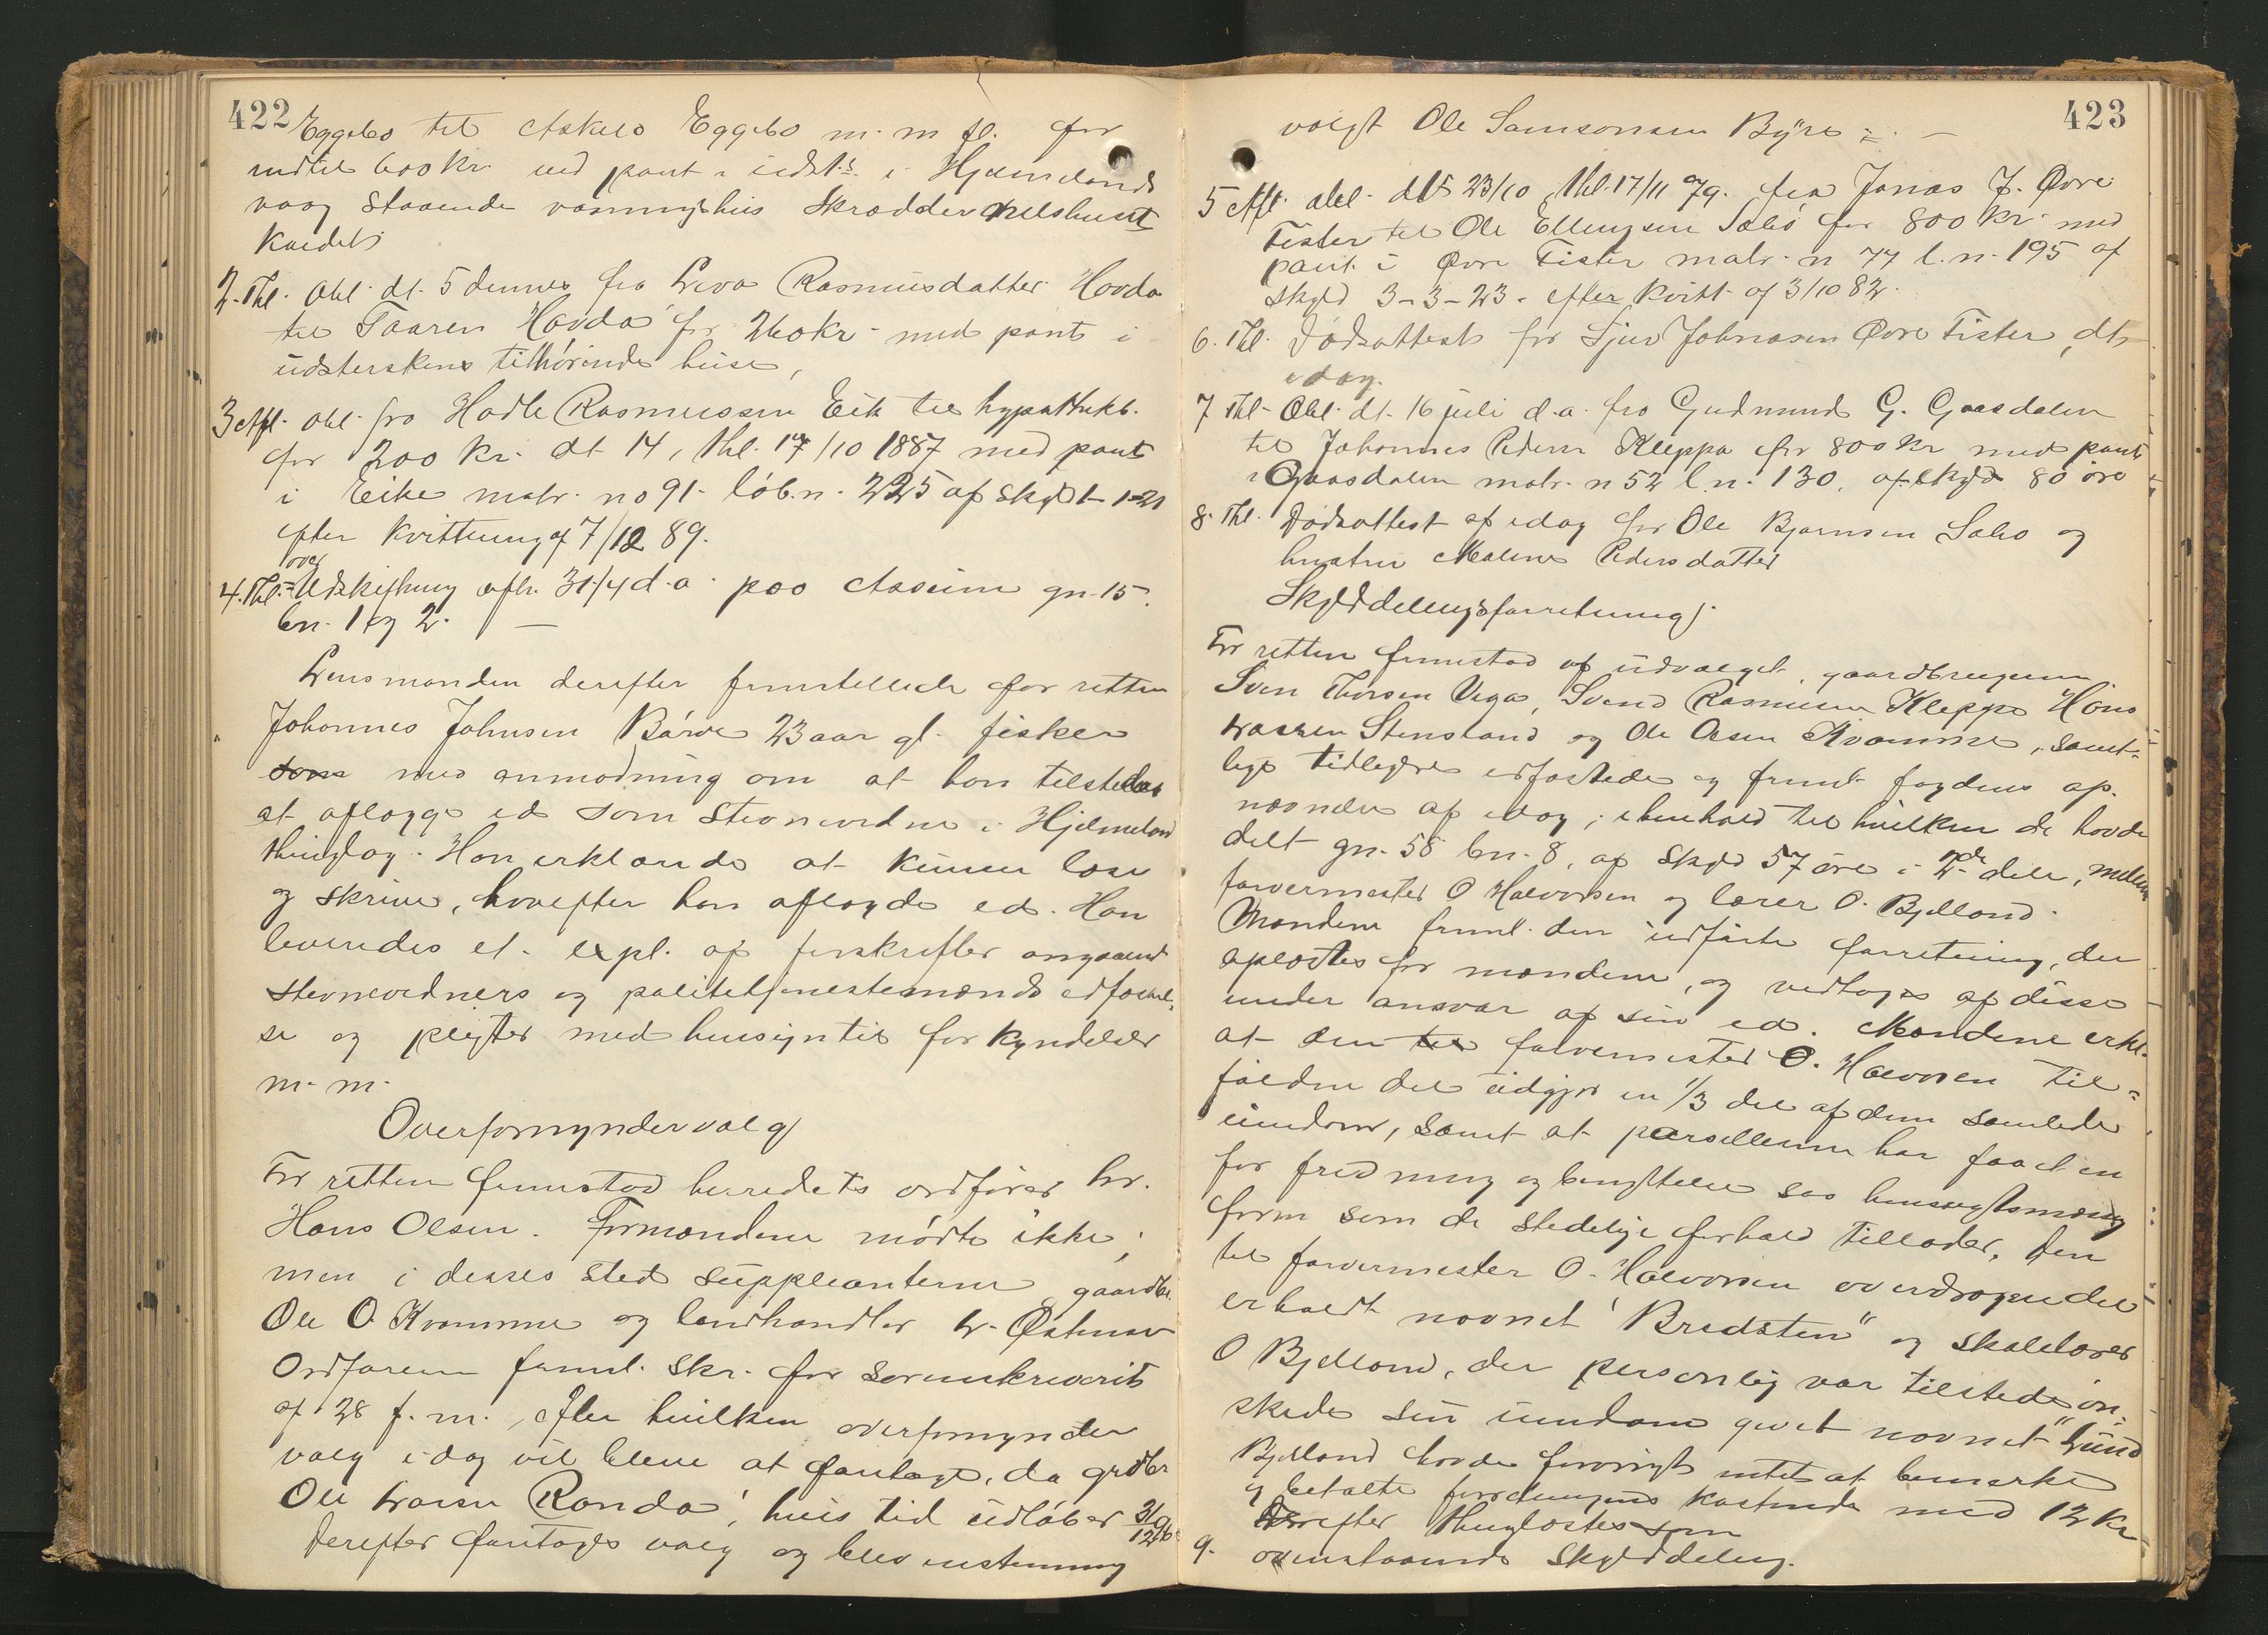 422
Eggebø til Askild Eggebø m. m fl. for
indtil 600 kr. ved pant i udst.s i Hjelmelands
vaag staaende vaaningshus Skrædder nelshuset
kaldet.
2. Thl. obl. dt. 5 dennes fra Liva Rasmusdatter Hovda
til Taaren Hovda for 260 kr. med pant i
udstederskens tilhørende huse,
3 Afl. obl. fra Hadle Rasmussen Eik til hypothekb.
for 200 kr. dt 14, thl. 17/10 1887 med pant
i Eike matr. no 91. løb.n. 225 af skyld 1-1-21
efter kvittering af 7/12 89.
4. Thl. over Udskiftning afh. 31/4 d.a. paa Aasum gn. 15.
bn. 1 og 2. —
Lensmanden derefter fremstillede for retten
Johannes Johnsen Børve 23 aar gl. fisker
som med anmodning om at han tilstedes
at aflægge ed som stevnevidne i Hjelmeland
thinglag. Han erklærede at kunne læse
og skrive, hvorefter han aflagde ed. Han
leveredes et expl. af forskrifter angaaende
stevnevidners og politetjenestemænds edfæstel-
se og pligter med hensyn til forkyndelser
m. m.
Overformyndervalg
For retten fremstod herredets ordfører hr.
Hans Olsen. Formændene mødte ikke;
men i desses sted suppleanterne gaardbr.
Ole O. Kvamme og landhandler L. Østhus
Ordføreren freml. skr. for sorenskriverit
af 28 f. m., efter hvilken overformynder
valg idag vil blive at foretage, da grdbr
Ole Larsen Randa', hvis tid udløber 31/12 96.
Derefter foretoges valg og blev enstemmig
423
valgt Ole Samsonsen Byre =. —
5 Afl. obl. dt 23/10, thl. 17/11 79. fra Jonas J. Øvre
Fister til Ole Ellingsen Sæbø for 800 kr. med
pant i Øvre Fister matr. n 77 l. n. 195 af
skyld 3-3-23. efter kvitt. af 3/10 82.
6. Thl. Dødsattest for Sjur Johnasen Øvre Fister, dt.
idag.
7 Thl. Obl. dt. 16 juli d.a. fra Gudmund G. Gaasdalen
til Johannes Pedersen Kleppa for 800 kr med pant
i Gaasdalen matr. n 52 l. n. 130. af skyld 80 øre
8. Thl. Dødsattest af idag for Ole Bjørnsen Sæbø og
hustru Malene Pedersdatter
Skylddelingsforretning
For retten fremstod af udvalget, gaardbrugerne
Sven Thorsen Viga, Svend Rasmussen Kleppe Hans
Larsen Stensland og Ole Olsen Kvamme, samt-
lige tidligere edfæstede og freml. fogdens op-
nævnelse af idag; i henhold til hvilken de havde
delt gn. 58 bn. 8, af skyld 57 øre i 2de dele, mellem
farvermester O Halvorsen og lærer O. Bjelland.
Mændene freml. den udførte forretning, der
oplæstes for mændene, og vedtoges af disse
under ansvar af sin ed. Mændene erkl.
at den til farvermester O. Halvorsen til-
faldne del udgjør en 1/3 del af den samlede
eiendom, samt at parsellerne har faaet en
for fredning og benyttelse saa hensigtsmæssig
form som de stedelige forhold tillader. Den
til farvermester O. Halvorsen overdragne del
er kaldt navnet "Bredsten" og skolelærer
O Bjelland, der personlig var tilstede øn-
skede sin eiendom givet navnet "Lund
Bjelland havde forøvrigt intet at bemærke
og betalte forretningens kostende med 12 kr
Derefter thinglæstes som
9. ovenstaaende skylddeling.